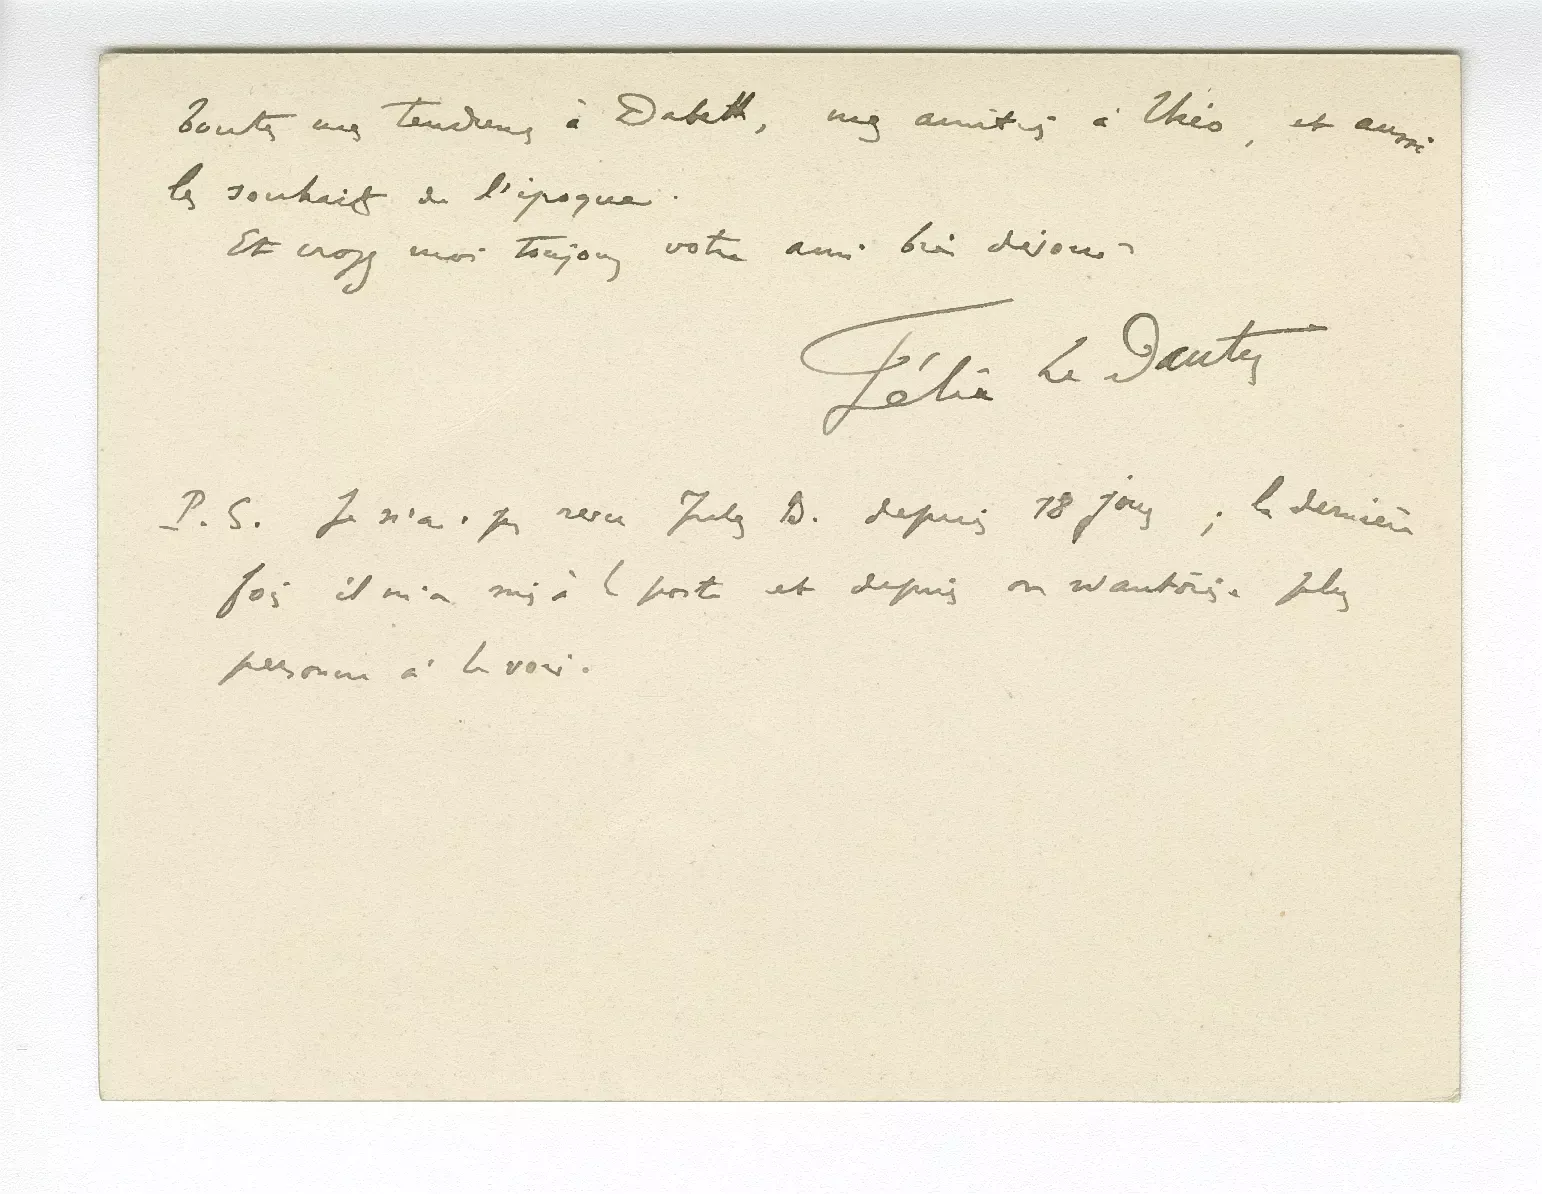 Toutes mes tendresses à Babeth, mes amitiés à Théo, et aussi
les souhaits de l'époque.
Et croyez moi toujours votre ami bien dévoué
Félix Le Dantec
P.S. Je n'ai pas revu Jules B. depuis 18 jours ; la dernière
fois il m'a mis à la porte et depuis on n'autorise plus
personne à le voir.